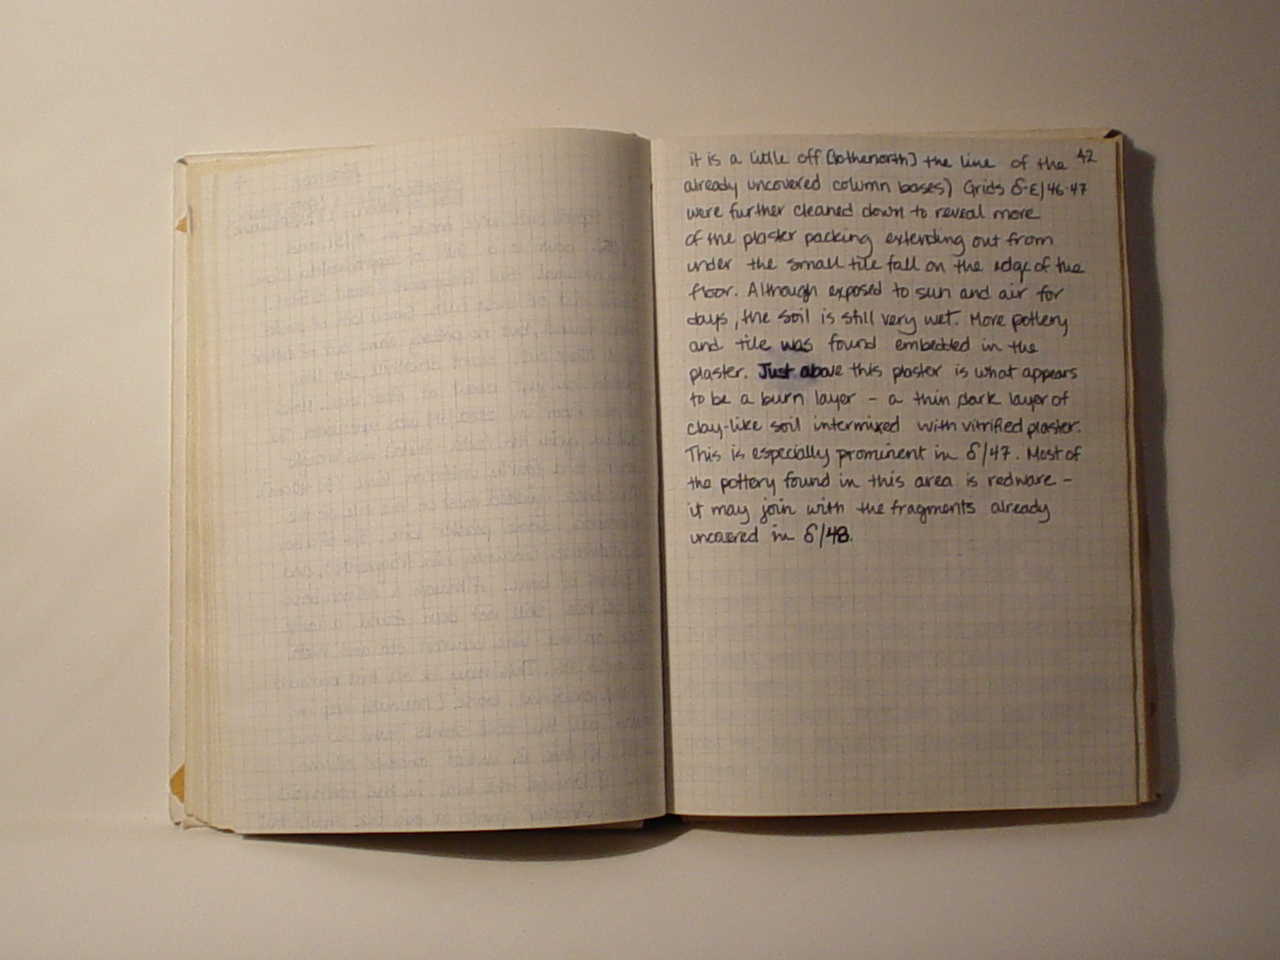 42
it is a little off [to the north] the line of the
already uncovered column bases) Grids δ-ε/46-47
were further cleaned down to reveal more
of the plaster packing extending out from
under the small tile fall on the edge of the
floor. Although exposed to sun and air for
days, the soil is still very wet. More pottery
and tile was found embedded in the
plaster. Just above this plaster is what appears
to be a burn layer - a thin dark layer of
clay-like soil intermixed with vitrified plaster.
This is especially prominent in δ/47. Most of
the pottery found in this area is redware -
it may join with the fragments already
uncovered in δ/48.